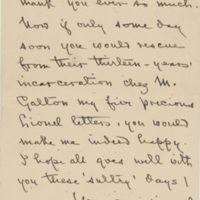 thank you ever so much.
Now if only some day
soon you would rescue
from their thirteen-years'
incarceration chez M.
Galton my five precious
Lionel letters, you would
make me indeed happy.
I hope all goes well with
you these "sultry" days!